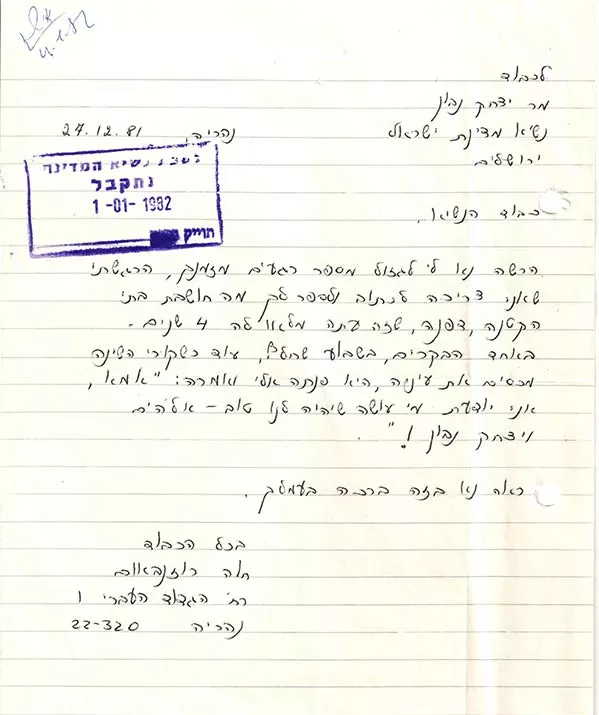 4.1.82
לכבוד
מר יצחק נבון
נשיא מדינת ישראל
ירושלים
נהריה, 27.12.81
לשכת נשיא המדינה
נתקבל
1 -01- 1982
תוייק
כבוד הנשיא,
הרשה נא לי לגזול מספר רגעים מזמנך, הרגשתי
שאני צריכה לכתוב ולספר לך מה חושבת בתי
הקטנה, דפנה, שזה עתה מלאו לה 4 שנים -
באחד הבקרים, בשבוע שחלף, עוד כשקורי השינה
מכסים את עיניה, היא פנתה אלי ואמרה: "אמא,
אני יודעת מי עושה שיהיה לנו טוב - אלהים
ויצחק נבון !".
ראה נא בזה ברכה בעמלך.
בכל הכבוד
חוה רוזנבאום
רח' הגדוד העברי 1
נהריה 22-320